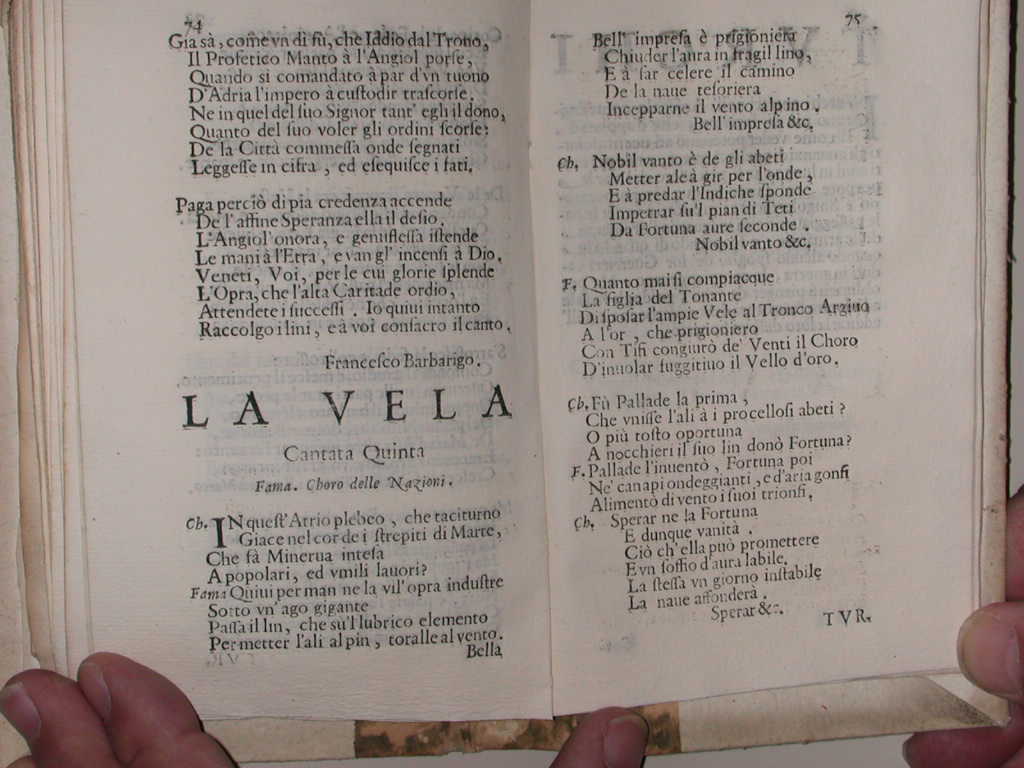 74
Gia sà, come vn dì fù, che Iddio dal Trono,
Il Profetico Manto à l'Angiol porse,
Quando si comandato à par d'vn tuono
D'Adria l'impero à custodir trascorse.
Ne in quel del suo Signor tant' egli il dono,
Quanto del suo voler gli ordini scorse:
De la Città commessa onde segnati
Leggesse in cifra, ed esequisce i fati.
Paga perciò di pia credenza accende
De l'affine Speranza ella il desio,
L'Angiol' onora, e genuflessa istende
Le mani à l'Etra, e van gl' incensi à Dio,
Veneti, Voi, per le cui glorie splende
L'Opra, che l'alta Caritade ordio,
Attendete i successi. Io quiui intanto
Raccolgo i lini, e à voi consacro il canto.
Francesco Barbarigo.
LA VELA
Cantata Quinta
Fama. Choro delle Nazioni.
Ch. IN quest' Atrio plebeo, che taciturno
Giace nel cor de i strepiti di Marte,
Che fà Minerua intesa
A popolari, ed vmili lauori?
Fama Quiui per man ne la vil' opra industre
Sotto vn' ago gigante
Passa il lin, che su'l lubrico elemento
Per metter l'ali al pin, toralle al vento.
Bella
75
Bell' impresa è prigioniera
Chiuder l'aura in fragil lino,
E à far celere il camino
De la naue tesoriera
Incepparne il vento alpino.
Bell' impresa &c.
Ch. Nobil vanto è de gli abeti
Metter ale à gir per l'onde,
E à predar l'Indiche sponde
Impetrar su'l pian di Teti
Da Fortuna aure seconde.
Nobil vanto &c.
F. Quanto mai si compiacque
La figlia del Tonante
Di sposar l'ampie Vele al Tronco Argiuo
A l'or, che prigioniero
Con Tifi congiurò de' Venti il Choro
D'inuolar fuggitiuo il Vello d'oro.
Ch. Fù Pallade la prima,
Che vnisse l'ali à i procellosi abeti?
O più tosto oportuna
A nocchieri il suo lin donò Fortuna?
F. Pallade l'inuentò, Fortuna poi
Ne' canapi ondeggianti, e d'aria gonfi
Alimentò di vento i suoi trionfi.
Ch. Sperar ne la Fortuna
E dunque vanità.
Ciò ch' ella può promettere
E vn soffio d'aura labile,
La stessa vn giorno instabile
La naue affonderà.
Sperar &c.
TVR.